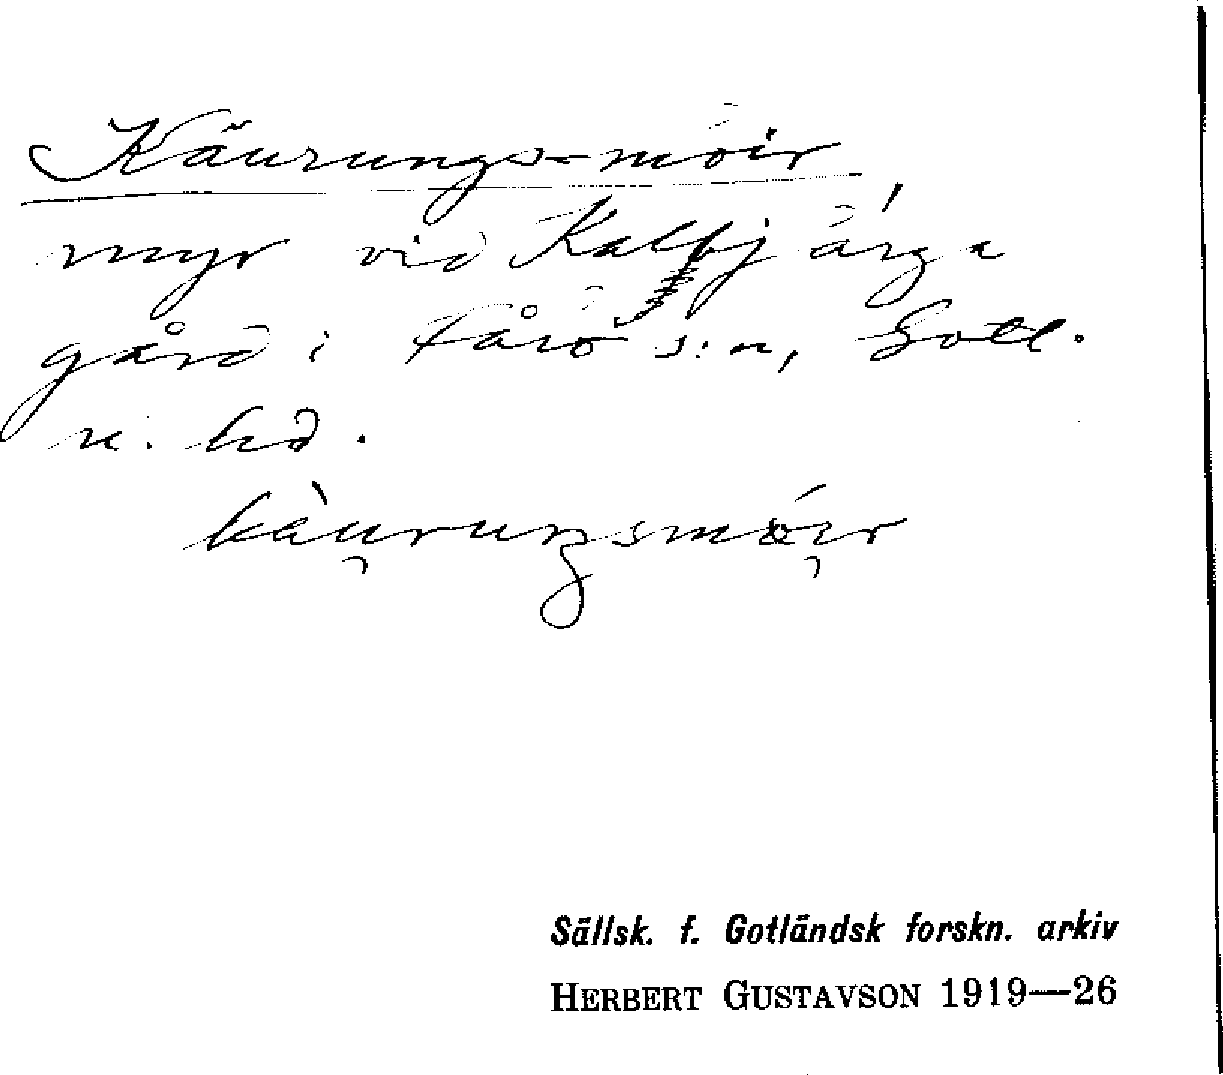 Käurungs-möir,
myr vid Kalbjärga
gård i Fårö s:n, Gotl.
n. hd.
kàu̯rungsmói̯r
Sällsk. f. Gotländsk forskn. arkiv
HERBERT GUSTAVSON 1919—26